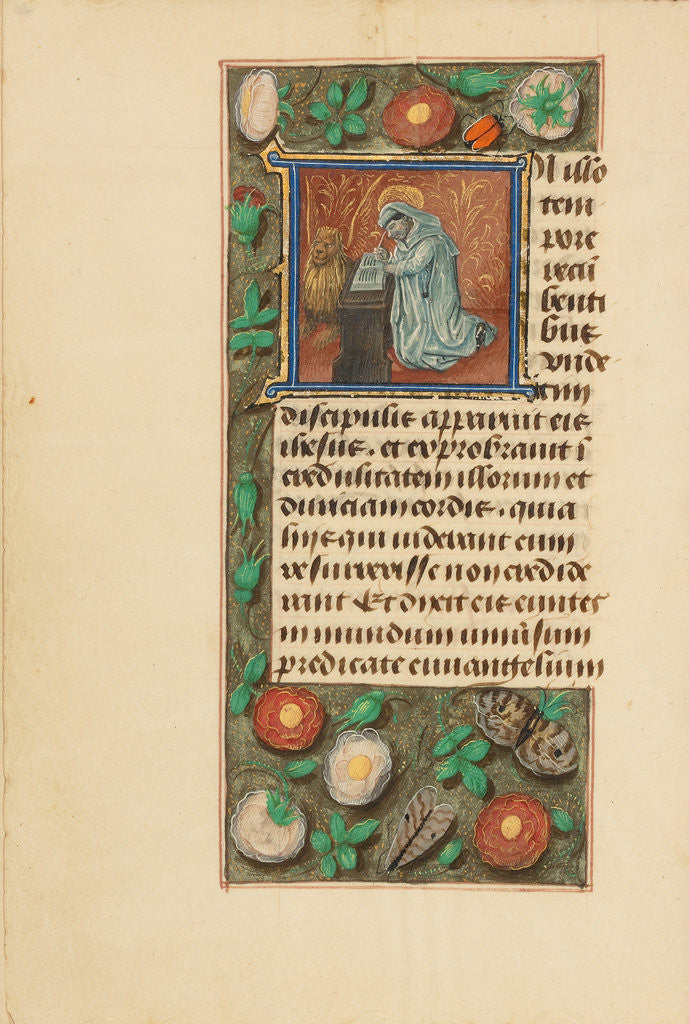 N illo
tem
pore
recū
benti
bus
unde
cim
discipulis apparuit eis
ihesus. et exprobravit ī
credulitatem illorum et
duriciam cordis. quia
hijs qui viderant eum
resurrexisse non credide
rant Et dixit eis euntes
in mundum univ̄sum
predicate euuangelium